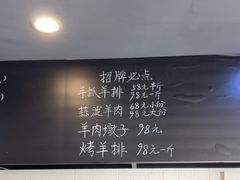 招牌必点
手抓羊排 58元半斤
98元一斤
蒜泼羊肉 68元小份
98元大份
羊肉墩子 98元
烤羊排 98元一斤